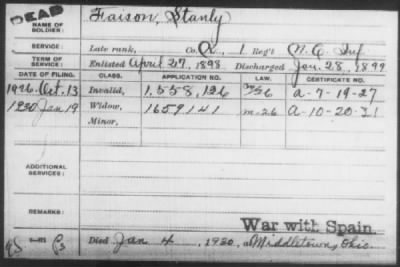 DEAD
NAME OF SOLDIER: Faison, Stanly
SERVICE: Late rank, Co. A, 1 Reg't N.C. Inf
TERM OF SERVICE: Enlisted April 27, 1898 Discharged Jan. 28, 1899
DATE OF FILING. CLASS. APPLICATION NO. LAW. CERTIFICATE NO.
1926 Oct. 13 Invalid, 1,558,126 A-7-19-27
1930 Jan 19 Widow, 1659141 m-26 A-10-20-31
Minor,
ADDITIONAL SERVICES:
REMARKS:
War with Spain.
Died Jan 4, 1930, at Middletown, Ohio.